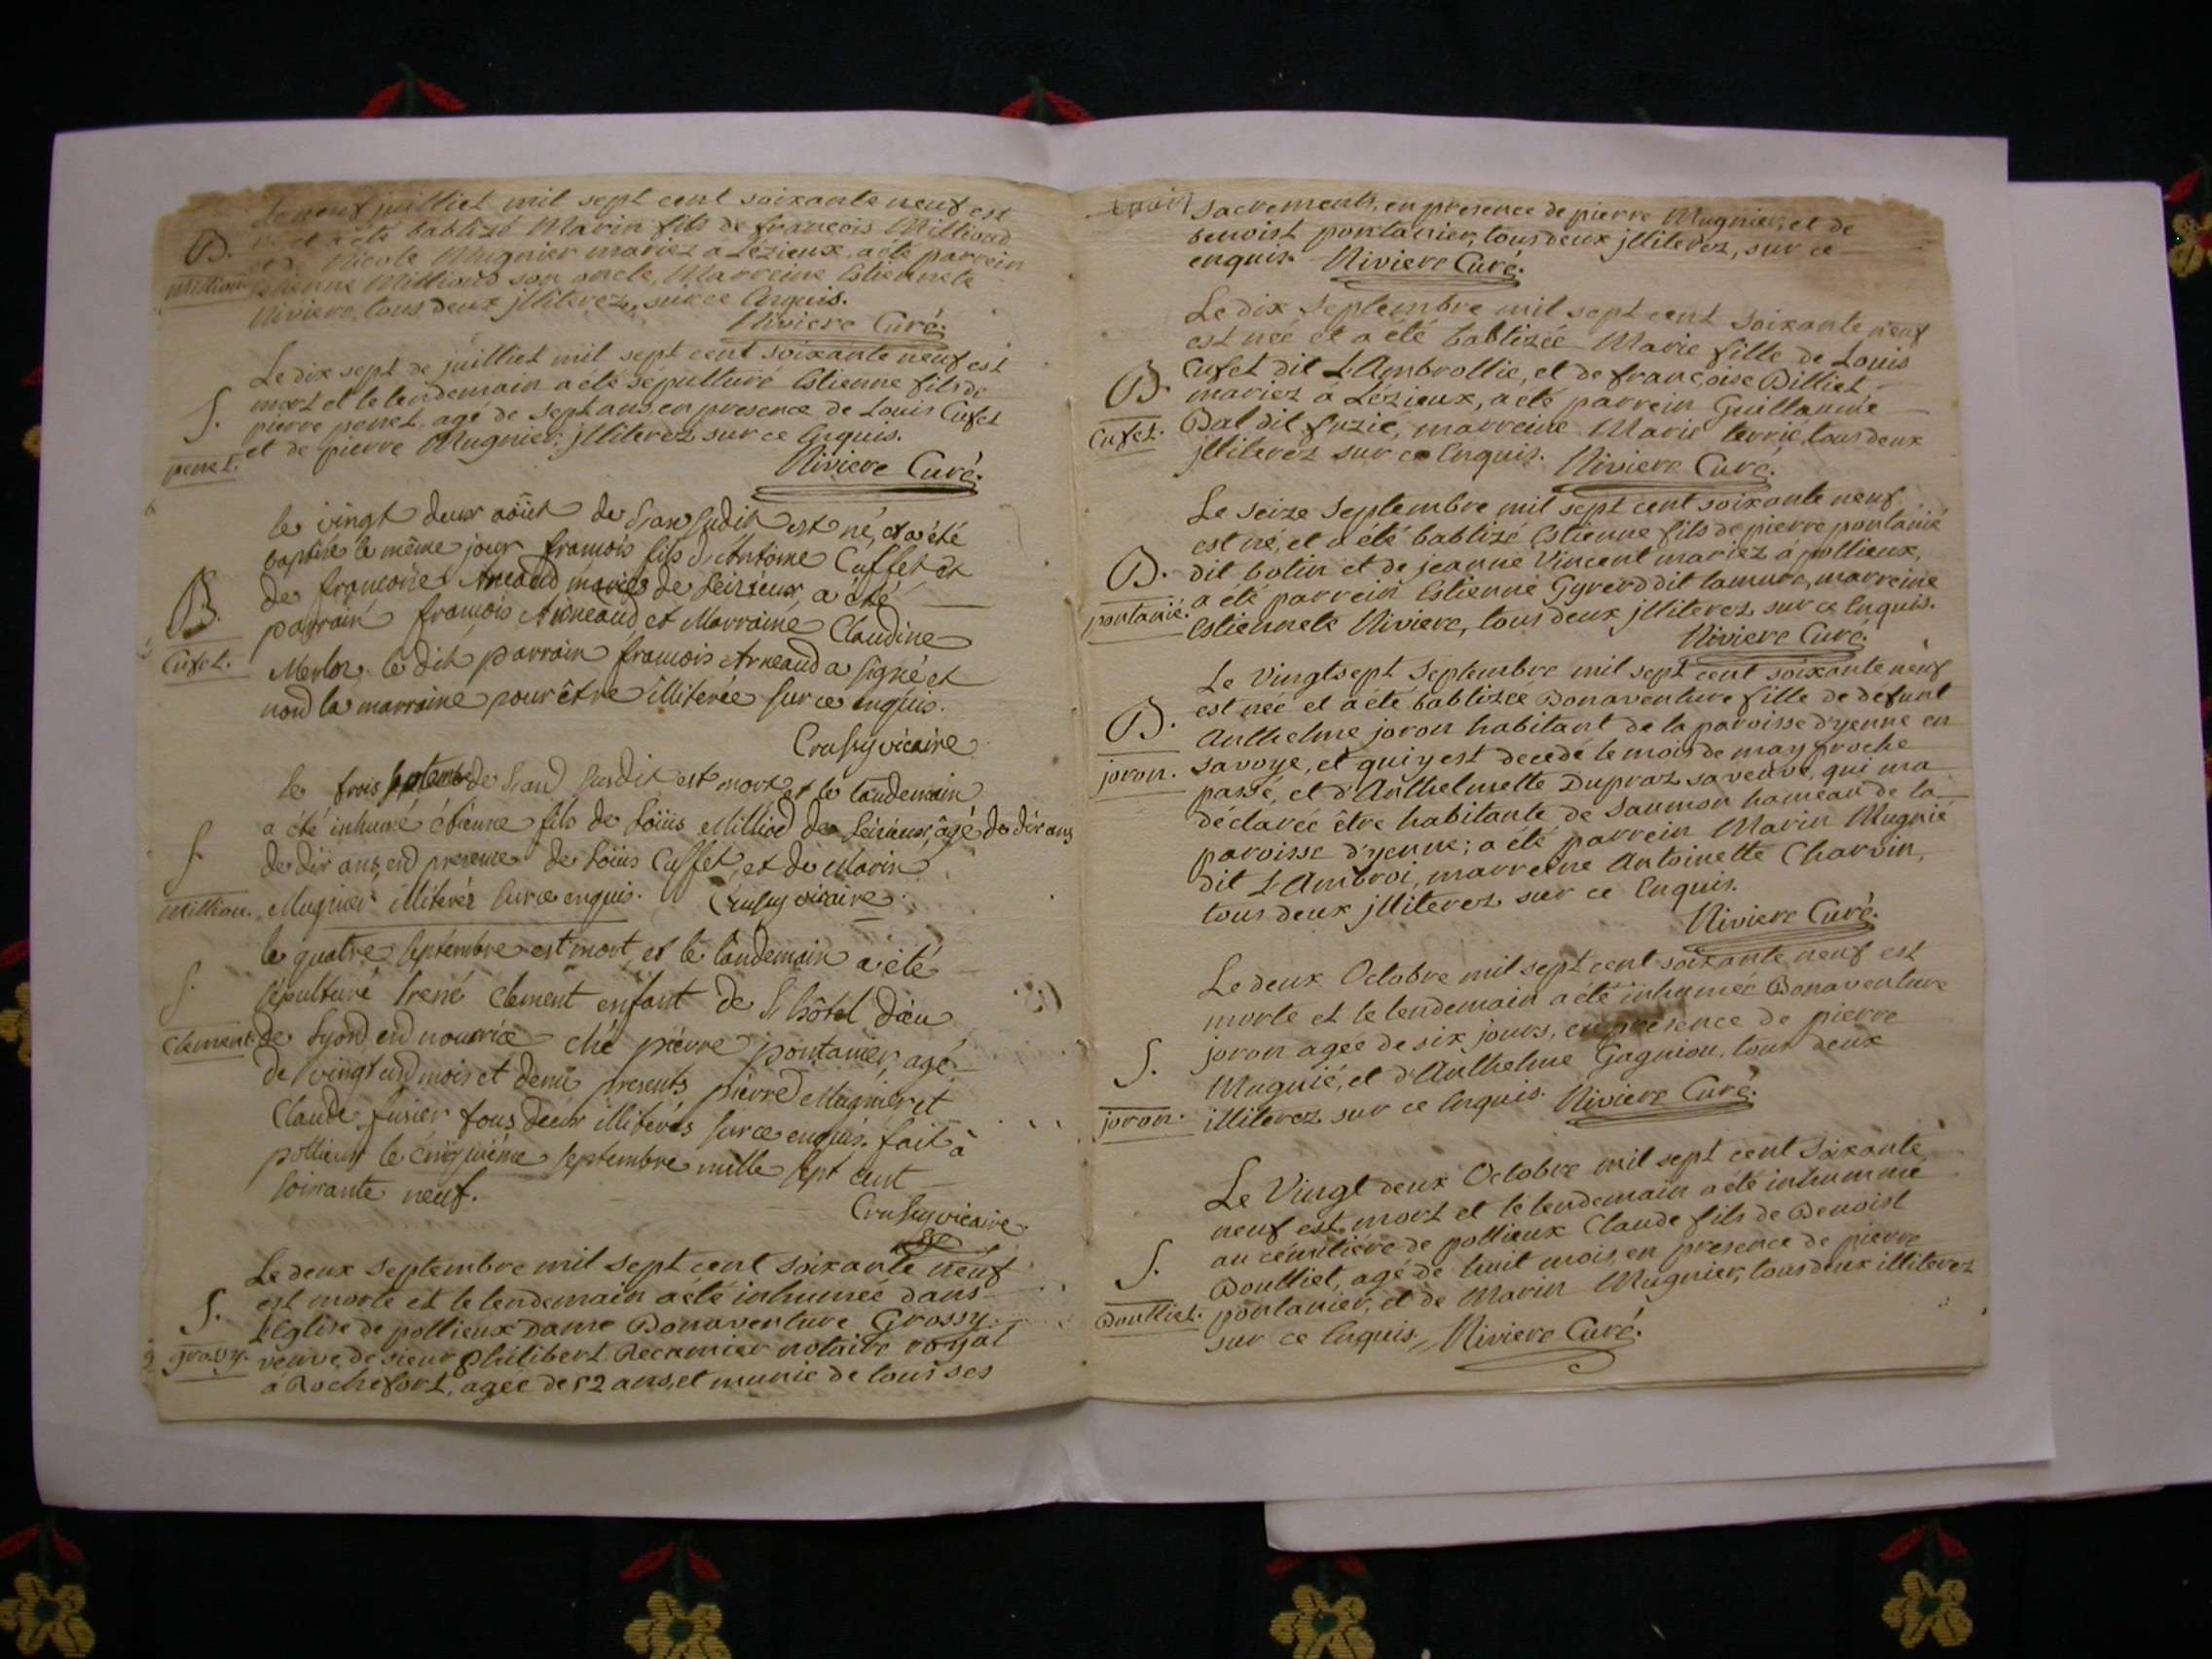 Le neuf juilliet mil sept cent soixante neuf est
né et a été babtizé Marin fils de françois Milliond
et de Nicole Mugnier mariez a Lézieux, a été parrein
B.
Milliond
Estienne Milliond son oncle, Marreine Estiennete
Riviere, tous deux jlliterez, sur ce Enquis.
Riviere Curé.
Le dix sept de juilliet mil sept cent soixante neuf est
mort et le lendemain a été sépulturé Estienne fils de
S.
pierre penet, agé de sept ans, en presence de Louis Cufet
penet.
et de pierre Mugnier, jlliterez sur ce Enquis.
Riviere Curé.
le vingt deux aôut de l'an sudit est né, et a été
baptisé le même jour françois fils d'Antoine Cuffet et
de françoise Arneaud mariés de Leizieux, a été
B.
parrain françois Arneaud et Marraine Claudine
Cufet.
Merloz le dit parrain françois Arneaud a signé et
non la marraine pour être illiterée sur ce enquis.
Crussy vicaire
le trois septembre de l'an susdit est mort et le landemain
a été inhumé étienne fils de Loüis Milliod de Leizieux, âgé de dix ans
S.
de dix ans, en presence de Loüis Cuffet, et de Marin
Million.
Mugnier illiterés sur ce enquis. Crussy vicaire
le quatre septembre est mort, et le landemain a été
S.
sépulturé Irené Clement enfant de L'hôtel dieu
Clement.
de Lyon en nourrice ché pierre pontanier, agé
de vingt un mois et demi presents pierre Mugnier et
Claude fusier tous deux illiterés sur ce enquis. fait à
pollieux le cinquiéme septembre mille sept cent
soixante neuf.
Crussy vicaire
Le deux Septembre mil sept cent soixante neuf
S.
est morte et le lendemain a été inhumée dans
L'Eglise de pollieux Dame Bonaventure Grossy
grossy.
veuve de sieur philibert Recamier notaire royal
à Rochefort, agée de 52 ans, et munie de tous ses
sacrements, en presence de pierre Mugnier, et de
benoist pontanier, tous deux jlliterez, sur ce
enquis. Riviere Curé.
Le dix Septembre mil sept cent soixante neuf
est née et a été babtizée Marie fille de Louis
Cufet dit L'Ambrollie, et de françoise Billiet
B.
mariez à Lézieux, a été parrein Guillaume
Cufet.
Bal dit fuzié, marreine Marie terrié, tous deux
jlliterez sur ce Enquis. Riviere Curé.
Le seize Septembre mil sept cent soixante neuf
est né, et a été babtizé Estienne fils de pierre pontanié
B.
dit botin et de jeanne Vincent mariez à pollieux,
pontanié.
a été parrein Estienne Gyrerd dit lamure, marreine
Estiennete Riviere, tous deux jlliterez sur ce Enquis.
Riviere Curé.
Le vingtsept Septembre mil sept cent soixante neuf
est née et a été babtizée Bonaventure fille de defunt
B.
Anthelme joron habitant de la paroisse d'yenne en
joron.
savoye, et qui y est decedé le mois de may proche
passé, et d'Anthelmette Dupraz sa veuve, qui m'a
déclarée être habitante de Saumon hameau de la
paroisse d'yenne; a été parrein Marin Mugnié
dit L'Ambroi, marreine Antoinette Charvin,
tous deux jlliterez sur ce Enquis.
Riviere Curé.
Le deux Octobre mil sept cent soixante neuf est
morte et le lendemain a été inhumée Bonaventure
joron agée de six jours, en presence de pierre
S.
Mugnié, et d'Anthelme Gagnion, tous deux
joron.
illiterez sur ce Enquis. Riviere Curé.
Le Vingt deux Octobre mil sept cent soixante
neuf est mort et le lendemain a été inhummé
au cémitiére de pollieux Claude fils de Benoist
S.
Doulliet, agé de huit mois, en presence de pierre
Doulliet.
pontanier, et de Marin Mugnier, tous deux illiterez
sur ce Enquis, Riviere Curé.